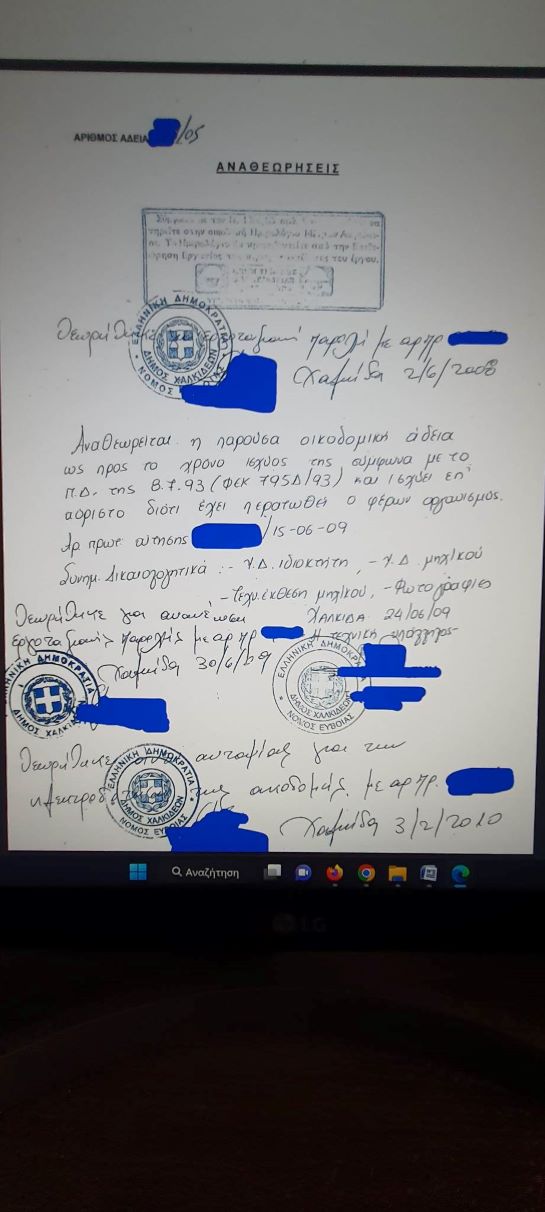 ΑΡΙΘΜΟΣ ΑΔΕΙΑ /05
ΑΝΑΘΕΩΡΗΣΕΙΣ
τηρείτε στην οικοδομή Ημερολόγιο Μέτρων
από την Επιθε-
ώρηση Εργασίας του έργου.
ΕΛΛΗΝΙΚΗ ΔΗΜΟΚΡΑΤΙΑ
ΔΗΜΟΣ ΧΑΛΚΙΔΕΩΝ
ΝΟΜΟΣ ΕΥΒΟΙΑΣ
Θεωρήθηκε εργοταξιακή παροχή με αρ πρ
Χαλκίδα 2/6/2008
Αναθεωρείται η παρούσα οικοδομική άδεια
ως προς το χρόνο ισχύος της σύμφωνα με το
Π.Δ. της 8.7.93 (ΦΕΚ 795Δ/93) και ισχύει επ'
αόριστο διότι έχει περατωθεί ο φέρων οργανισμός.
Αρ πρωτ αίτησης /15-06-09
Συνημ. Δικαιολογητικά :- Υ.Δ. ιδιοκτήτη, - Υ.Δ. μηχ/κού
-Τεχν. έκθεση μηχ/κού, -Φωτογραφίες
Θεωρήθηκε για ανανέωση ΧΑΛΚΙΔΑ 24/06/09
εργοταξιακής παροχής με αρ πρ Η τεχνική υπάλληλος
Χαλκίδα 30/6/09
ΕΛΛΗΝΙΚΗ ΔΗΜΟΚΡΑΤΙΑ
ΔΗΜΟΣ ΧΑΛΚΙΔΕΩΝ
ΕΛΛΗΝΙΚΗ ΔΗΜΟΚΡΑΤΙΑ
ΔΗΜΟΣ ΧΑΛΚΙΔΕΩΝ
ΝΟΜΟΣ ΕΥΒΟΙΑΣ
Θεωρήθηκε αυτοψίας για την
ηλεκτροδ της οικοδομής με αρ πρ.
ΕΛΛΗΝΙΚΗ ΔΗΜΟΚΡΑΤΙΑ
ΔΗΜΟΣ ΧΑΛΚΙΔΕΩΝ
ΝΟΜΟΣ ΕΥΒΟΙΑΣ
Χαλκίδα 3/2/2010
Αναζήτηση
LG